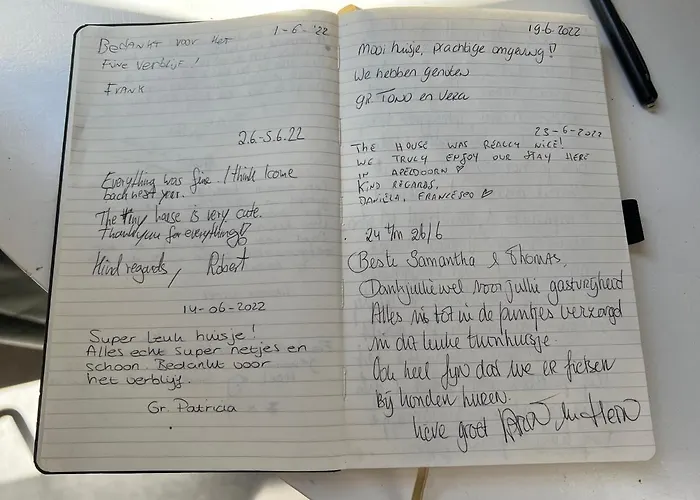 1-6-'22
Bedankt voor het
Fijne verblijf!
Frank
2.6.-5.6.22
Everything was fine. I think I come
back next year.
The tiny house is very cute.
Thank you for everything!
Kind regards, Robert
14-06-2022
Super leuk huisje!
Alles echt super netjes en
schoon. Bedankt voor
het verblijf.
Gr. Patricia
19.6.2022
Mooi huisje, prachtige omgeving!
We hebben genoten
gr. Tono en Vera
23-6-2022
The house was really nice!
We truly enjoy our stay here
in Apeldoorn ♡
Kind regards,
Daniela, Francesco ♡
24 t/m 26/6
Beste Samantha & Thomas,
Dank jullie wel voor jullie gastvrijheid
Alles is tot in de puntjes verzorgd
in dit leuke tuinhuisje.
Ook heel fijn dat we er fietsen
Bij konden huren.
lieve groet